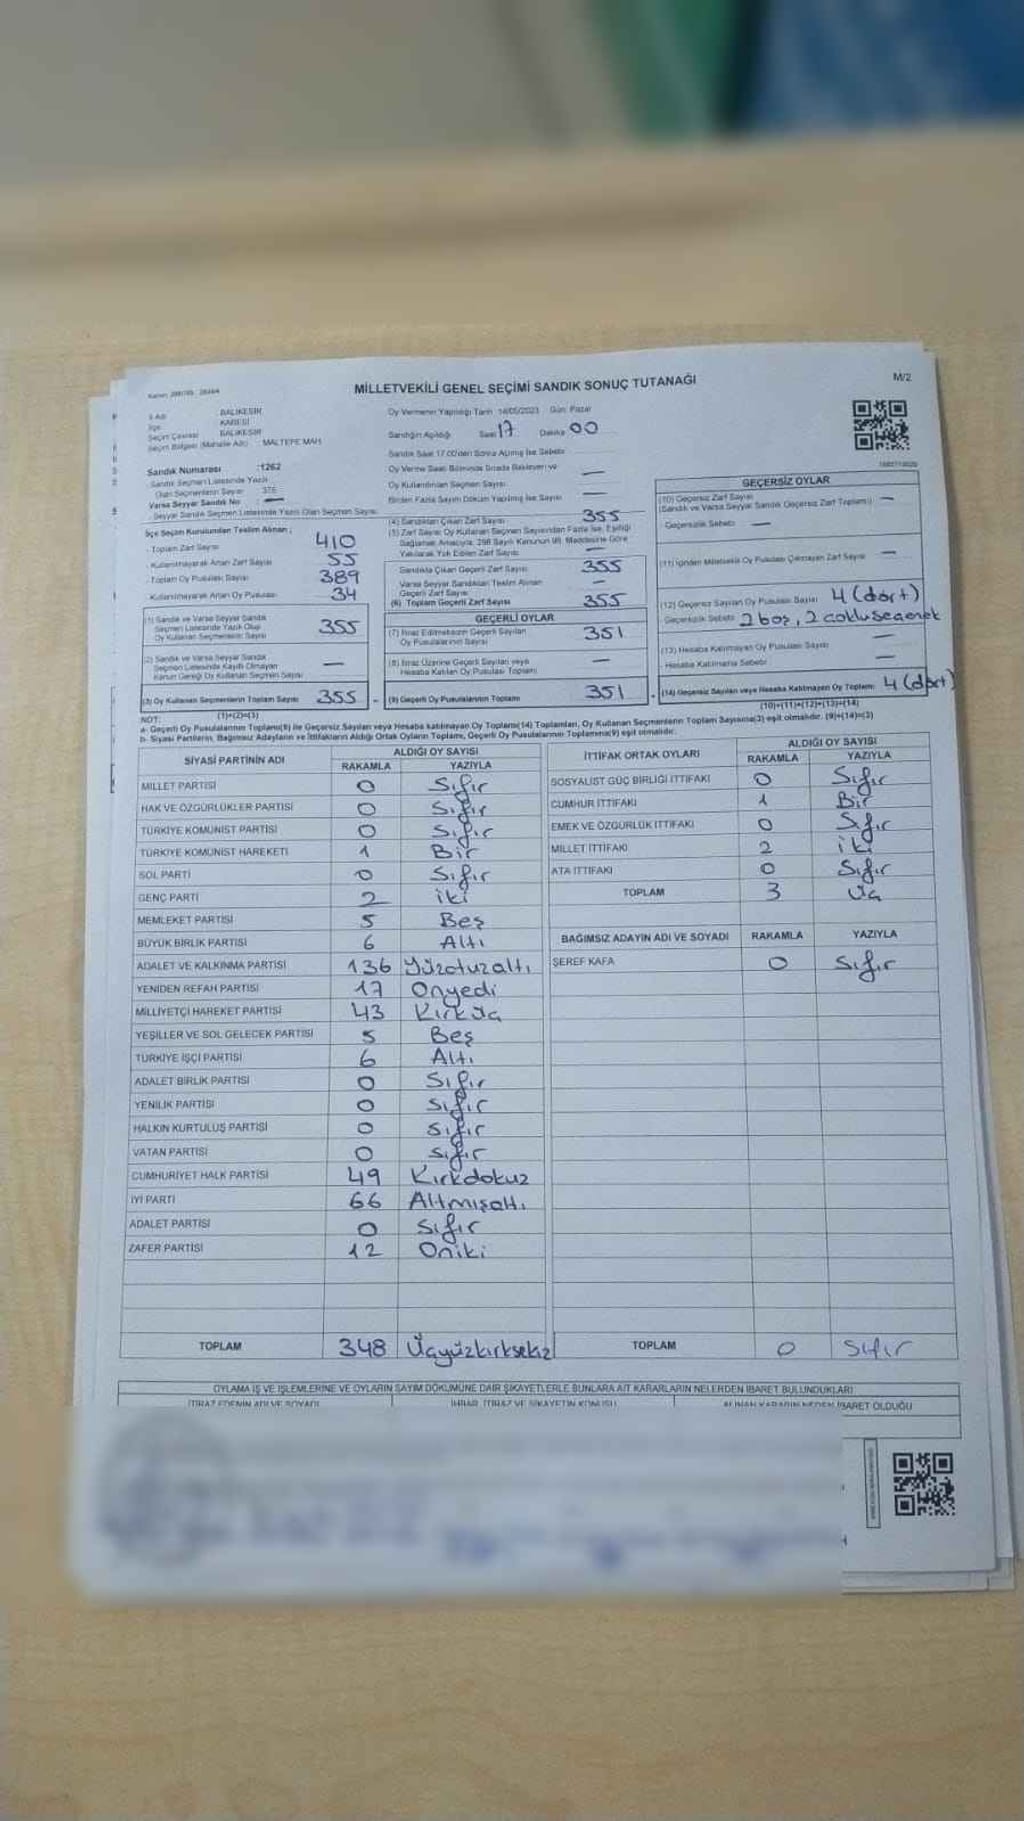 MİLLETVEKİLİ GENEL SEÇİMİ SANDIK SONUÇ TUTANAĞI
M/2
İl Adı BALIKESİR
İlçe KARESİ
Seçim Çevresi BALIKESİR
Seçim Bölgesi (Mahalle Adı) : MALTEPE MAH.
Sandık Numarası :1262
Sandık Seçmen Listesinde Yazılı
Olan Seçmenlerin Sayısı 376
Varsa Seyyar Sandık No —
Seyyar Sandık Seçmen Listesinde Yazılı Olan Seçmen Sayısı
Oy Vermenin Yapıldığı Tarih 14/05/2023 Gün: Pazar
Sandığın Açıldığı Saat 17 Dakika 00
Sandık Saat 17.00'den Sonra Açılmış İse Sebebi
Oy Verme Saati Bitiminde Sırada Bekleyen ve
Oy Kullandırılan Seçmen Sayısı —
Birden Fazla Sayım Döküm Yapılmış İse Sayısı —
İlçe Seçim Kurulundan Teslim Alınan ;
Toplam Zarf Sayısı 410
Kullanılmayarak Artan Zarf Sayısı 55
Toplam Oy Pusulası Sayısı 389
Kullanılmayarak Artan Oy Pusulası 34
(1) Sandık ve Varsa Seyyar Sandık
Seçmen Listesinde Yazılı Olup
Oy Kullanan Seçmenlerin Sayısı 355
(2) Sandık ve Varsa Seyyar Sandık
Seçmen Listesinde Kayıtlı Olmayan
Kanun Gereği Oy Kullanan Seçmen Sayısı —
(3) Oy Kullanan Seçmenlerin Toplam Sayısı 355
(1)+(2)=(3)
(4) Sandıktan Çıkan Zarf Sayısı 355
(5) Zarf Sayısı Oy Kullanan Seçmen Sayısından Fazla İse, Eşitliği
Sağlamak Amacıyla, 298 Sayılı Kanunun 98. Maddesine Göre
Yakılarak Yok Edilen Zarf Sayısı —
Sandıkta Çıkan Geçerli Zarf Sayısı 355
Varsa Seyyar Sandıktan Teslim Alınan
Geçerli Zarf Sayısı —
(6) Toplam Geçerli Zarf Sayısı 355
GEÇERLİ OYLAR
(7) İtiraz Edilmeksizin Geçerli Sayılan
Oy Pusulalarının Sayısı 351
(8) İtiraz Üzerine Geçerli Sayılan veya
Hesaba Katılan Oy Pusulası Toplamı —
(9) Geçerli Oy Pusulalarının Toplamı 351
GEÇERSİZ OYLAR
(10) Geçersiz Zarf Sayısı
(Sandık ve Varsa Seyyar Sandık Geçersiz Zarf Toplamı) —
Geçersizlik Sebebi —
(11) İçinden Milletvekili Oy Pusulası Çıkmayan Zarf Sayısı —
(12) Geçersiz Sayılan Oy Pusulası Sayısı 4 (dört)
Geçersizlik Sebebi 2 boş, 2 çoklu seçenek
(13) Hesaba Katılmayan Oy Pusulası Sayısı —
Hesaba Katılmama Sebebi —
(14) Geçersiz Sayılan veya Hesaba Katılmayan Oy Toplamı 4 (dört)
(10)+(11)+(12)+(13)=(14)
NOT:
a- Geçerli Oy Pusulalarının Toplamı(9) ile Geçersiz Sayılan veya Hesaba katılmayan Oy Toplamı(14) Toplamları, Oy Kullanan Seçmenlerin Toplam Sayısına(3) eşit olmalıdır. (9)+(14)=(3)
b- Siyasi Partilerin, Bağımsız Adayların ve İttifakların Aldığı Ortak Oyların Toplamı, Geçerli Oy Pusulalarının Toplamına(9) eşit olmalıdır.
SİYASİ PARTİNİN ADI ALDIĞI OY SAYISI
RAKAMLA YAZIYLA
MİLLET PARTİSİ 0 Sıfır
HAK VE ÖZGÜRLÜKLER PARTİSİ 0 Sıfır
TÜRKİYE KOMÜNİST PARTİSİ 0 Sıfır
TÜRKİYE KOMÜNİST HAREKETİ 1 Bir
SOL PARTİ 0 Sıfır
GENÇ PARTİ 2 iki
MEMLEKET PARTİSİ 5 Beş
BÜYÜK BİRLİK PARTİSİ 6 Altı
ADALET VE KALKINMA PARTİSİ 136 Yüzotuzaltı
YENİDEN REFAH PARTİSİ 17 Onyedi
MİLLİYETÇİ HAREKET PARTİSİ 43 Kırküç
YEŞİLLER VE SOL GELECEK PARTİSİ 5 Beş
TÜRKİYE İŞÇİ PARTİSİ 6 Altı
ADALET BİRLİK PARTİSİ 0 Sıfır
YENİLİK PARTİSİ 0 Sıfır
HALKIN KURTULUŞ PARTİSİ 0 Sıfır
VATAN PARTİSİ 0 Sıfır
CUMHURİYET HALK PARTİSİ 49 Kırkdokuz
İYİ PARTİ 66 Altmışaltı
ADALET PARTİSİ 0 Sıfır
ZAFER PARTİSİ 12 Oniki
TOPLAM 348 Üçyüzkırksekiz
İTTİFAK ORTAK OYLARI ALDIĞI OY SAYISI
RAKAMLA YAZIYLA
SOSYALİST GÜÇ BİRLİĞİ İTTİFAKI 0 Sıfır
CUMHUR İTTİFAKI 1 Bir
EMEK VE ÖZGÜRLÜK İTTİFAKI 0 Sıfır
MİLLET İTTİFAKI 2 iki
ATA İTTİFAKI 0 Sıfır
TOPLAM 3 Üç
BAĞIMSIZ ADAYIN ADI VE SOYADI RAKAMLA YAZIYLA
ŞEREF KAFA 0 Sıfır
TOPLAM 0 Sıfır
OYLAMA İŞ VE İŞLEMLERİNE VE OYLARIN SAYIM DÖKÜMÜNE DAİR ŞİKAYETLERLE BUNLARA AİT KARARLARIN NELERDEN İBARET BULUNDUKLARI
İTİRAZ EDENİN ADI VE SOYADI İHBAR, İTİRAZ VE ŞİKAYETİN KONUSU ALINAN KARARIN NEDEN İBARET OLDUĞU